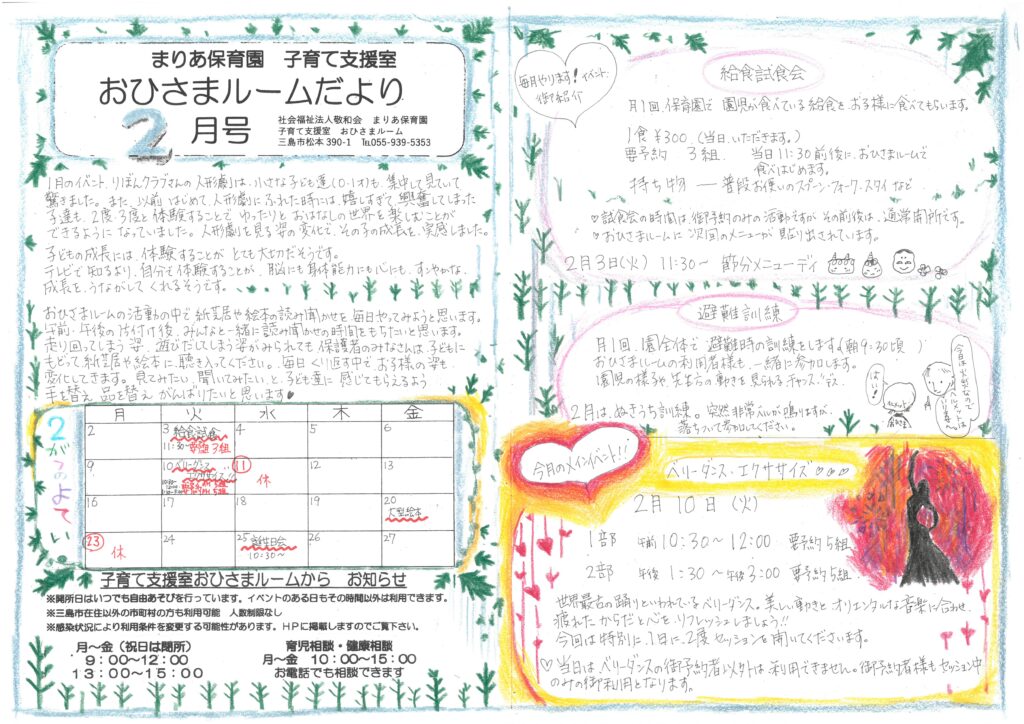 まりあ保育園 子育て支援室
おひさまルームだより
2月号
社会福祉法人敬和会 まりあ保育園
子育て支援室 おひさまルーム
三島市松本390-1 ℡055-939-5353
1月のイベント、りぼんクラブさんの人形劇は、小さな子ども達(0.1才)も、集中して見ていて
驚きました。また、以前はじめて、人形劇にふれた時には、嬉しすぎて、興奮してしまった
子達も、2度・3度と体験することでゆったりとおはなしの世界を楽しむことが
できるようになっていました。人形劇を見る姿の変化で、その子の成長を、実感しました。
子どもの成長には、体験することがとても大切だそうです。
テレビで知るより、自分で体験することが、脳にも身体能力にも心にも、すこやかな、
成長を、うながしてくれるそうです。
おひさまルームの活動の中で紙芝居や絵本の読み聞かせを毎日やってみようと思います。
午前・午後の片付け後、みんなと一緒に読み聞かせの時間をもちたいと思います。
走り回ってしまう姿、遊びだしてしまう姿がみられても保護者のみなさんは、子どもに
もどって紙芝居や絵本に、聴き入ってください。毎日くり返す中で、お子様の姿も
変化してきます。見てみたい、聞いてみたい、と、子ども達に感じてもらえるよう
手を替え品を替えがんばりたいと思います♥
2がつのよてい
月 火 水 木 金
2 3 給食試食 11:30~ 要予約3組 4 5 6
9 10 ベリーダンス エクササイズ 11 休 12 13
16 17 18 19 20 大型絵本
23 休 24 25 誕生日会 10:30~ 26 27
子育て支援室おひさまルームから お知らせ
※開所日はいつでも自由あそびを行っています。イベントのある日もその時間以外は利用できます。
※三島市在住以外の市町村の方も利用可能 人数制限なし
※感染状況により利用条件を変更する可能性があります。HPに掲載しますのでご覧下さい。
月~金(祝日は閉所)
9:00~12:00
13:00~15:00
育児相談・健康相談
月~金 10:00~15:00
お電話でも相談できます
毎月やります!イベント
御紹介
給食試食会
月1回保育園で園児が食べている給食をお子様に食べてもらいます。
1食¥300(当日いただきます。)
要予約 3組. 当日11:30前後に、おひさまルームで
食べはじめます。
持ち物 ― 普段お使いのスプーン・フォーク・スタイなど
♡試食会の時間は御予約のみの活動ですがその前後は、通常開所です。
♡おひさまルームに次回のメニューが貼り出されています。
2月3日(火) 11:30~ 節分メニューデイ
避難訓練
月1回、園全体で避難時の訓練をします(朝9:30頃)
おひさまルームの利用者様も、一緒に参加します。
園児の様子や先生方の動きを見られるチャンスデス
2月は、ぬきうち訓練。突然非常ベルが鳴りますが、
落ちついて参加してください。
はい!
今月のメインイベント!!
ベリーダンス・エクササイズ♡♡♡
2月10日(火)
1部 午前10:30~12:00 要予約5組
2部 午後1:30~午後3:00 要予約5組
世界最古の踊りといわれているベリーダンス。美しい動きとオリエンタルな音楽に合わせ、
疲れたからだと心をリフレッシュしましょう!!
今回は特別に、1日に、2度セッションを開いてくださいます。
♡当日はベリーダンスの御予約者以外は利用できません。御予約者様もセッション中
のみの御利用となります。